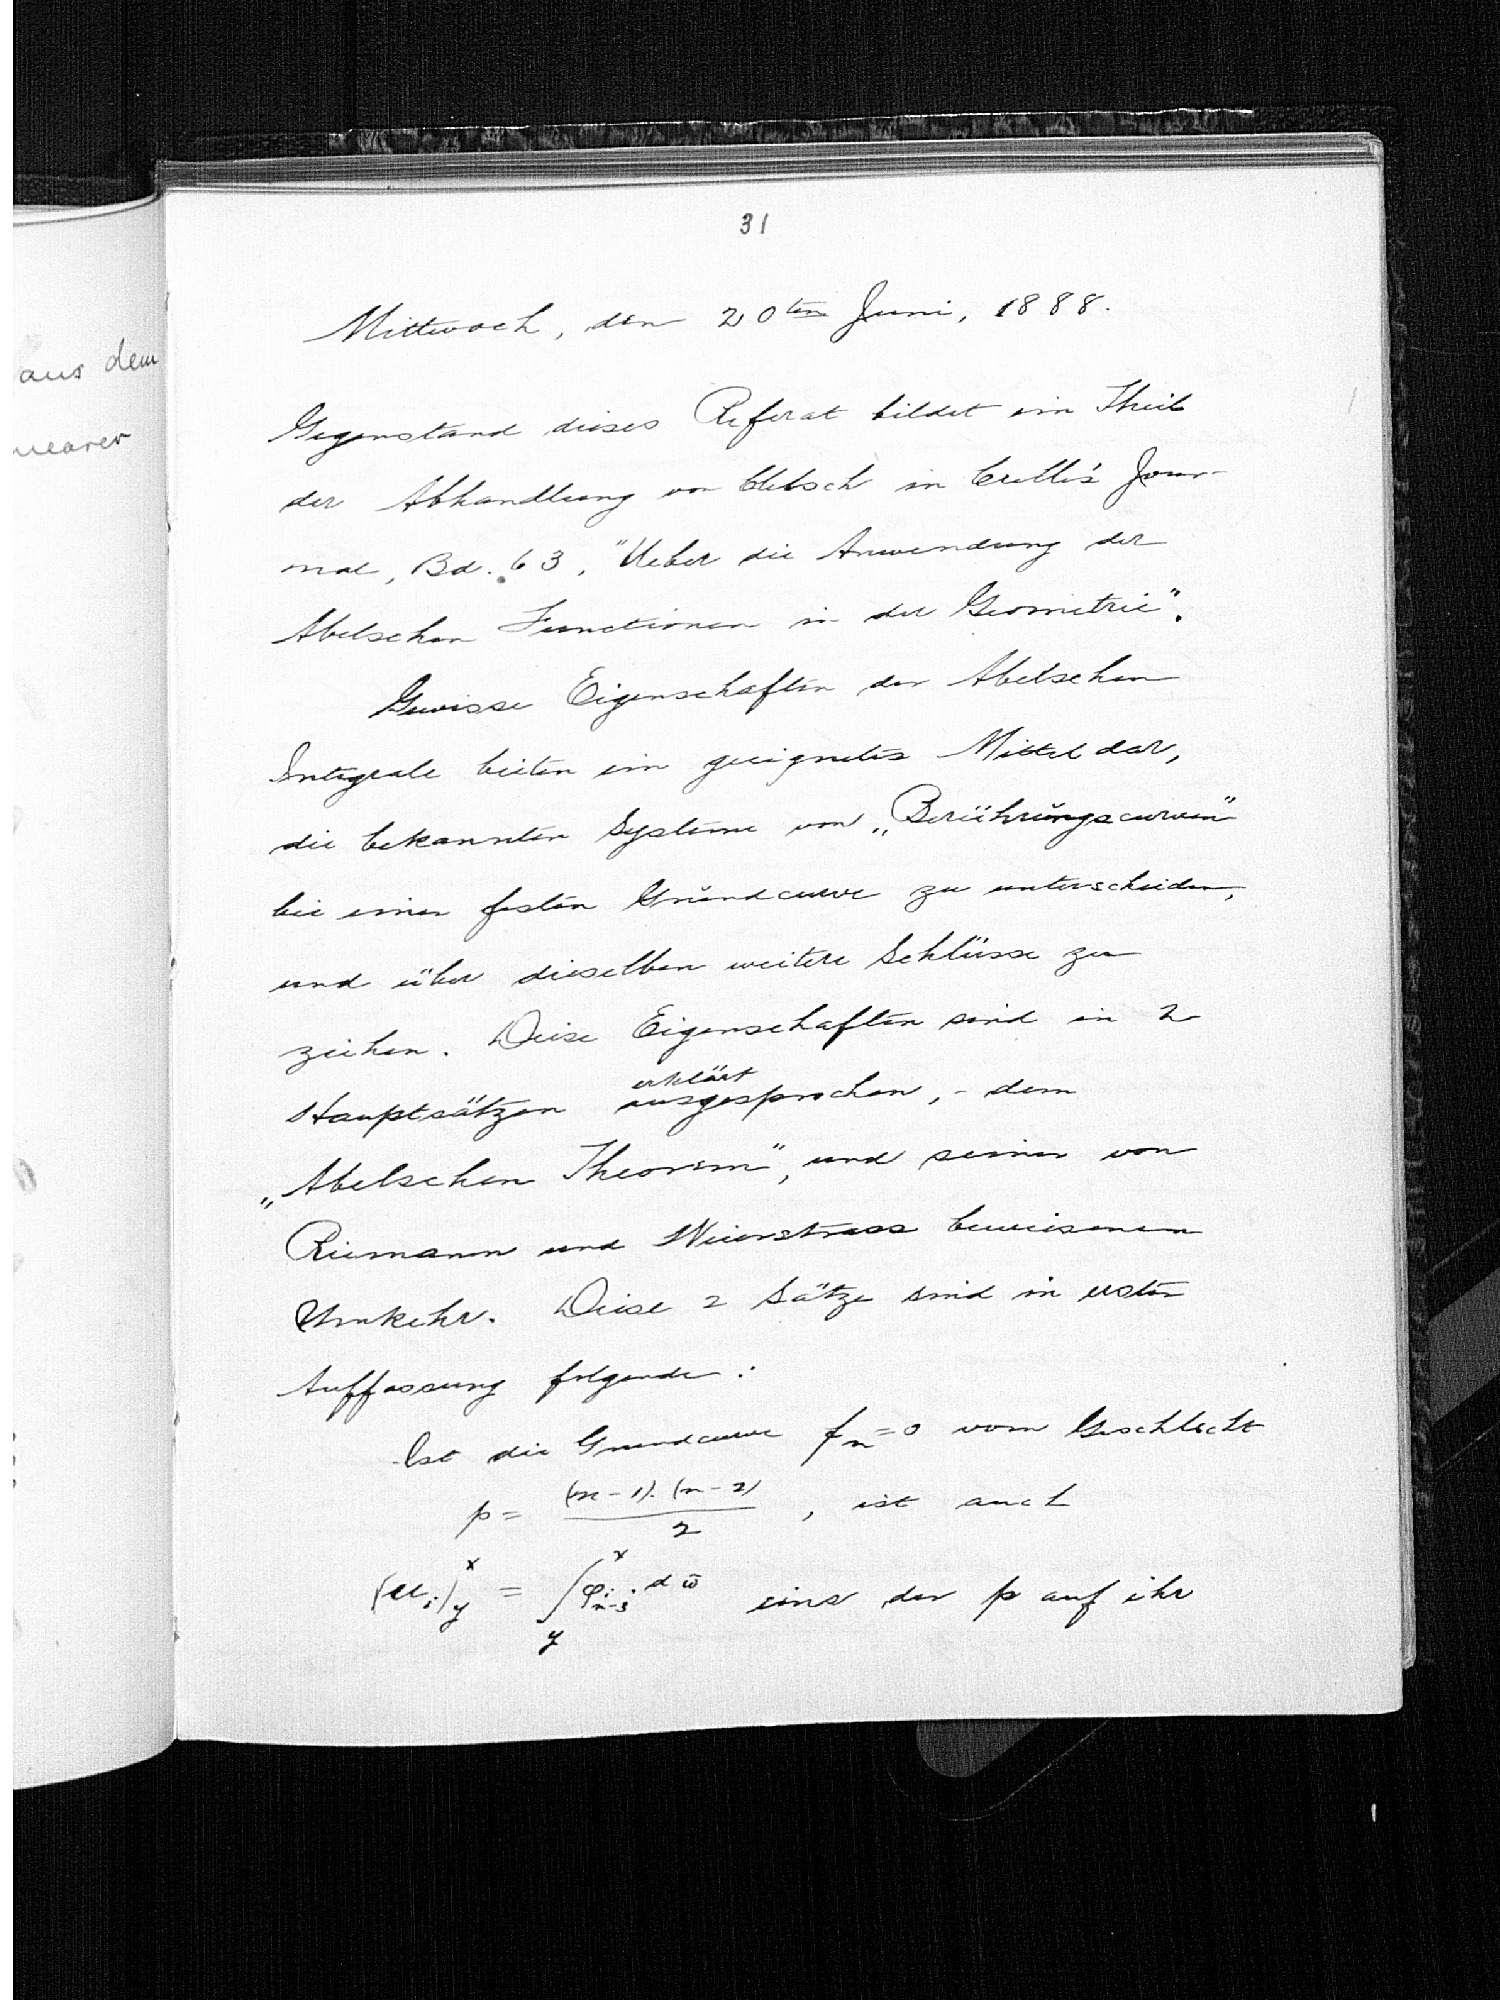 31
Mittwoch, den 20ten Juni, 1888.
aus dem
Gegenstand dieses Referat bildet ein Theil
der Abhandlung von Clebsch in Crelle's Jour-
nal, Bd. 63, "Ueber die Anwendung der
Abelschen Functionen in der Geometrie".
Gewisse Eigenschaften der Abelschen
Integrale bieten ein geeignetes Mittel dar,
die bekannten Systeme von „Berührungscurven"
bei einer festen Grundcurve zu unterscheiden,
und über dieselben weitere Schlüsse zu
ziehen. Diese Eigenschaften sind in 2
erklärt
Hauptsätzen ausgesprochen, - dem
„Abelschen Theorem", und seiner von
Riemann und Weierstrass beweisenen
Umkehr. Diese 2 Sätze sind in erster
Auffassung folgende:
Ist die Grundcurve fₙ=0 vom Geschlecht
p = (n-1).(n-2)/2, ist auch
(uᵢ)_y^x = ∫_y^x φⁱ_{n-3} . dω̄ eins der p auf ihr